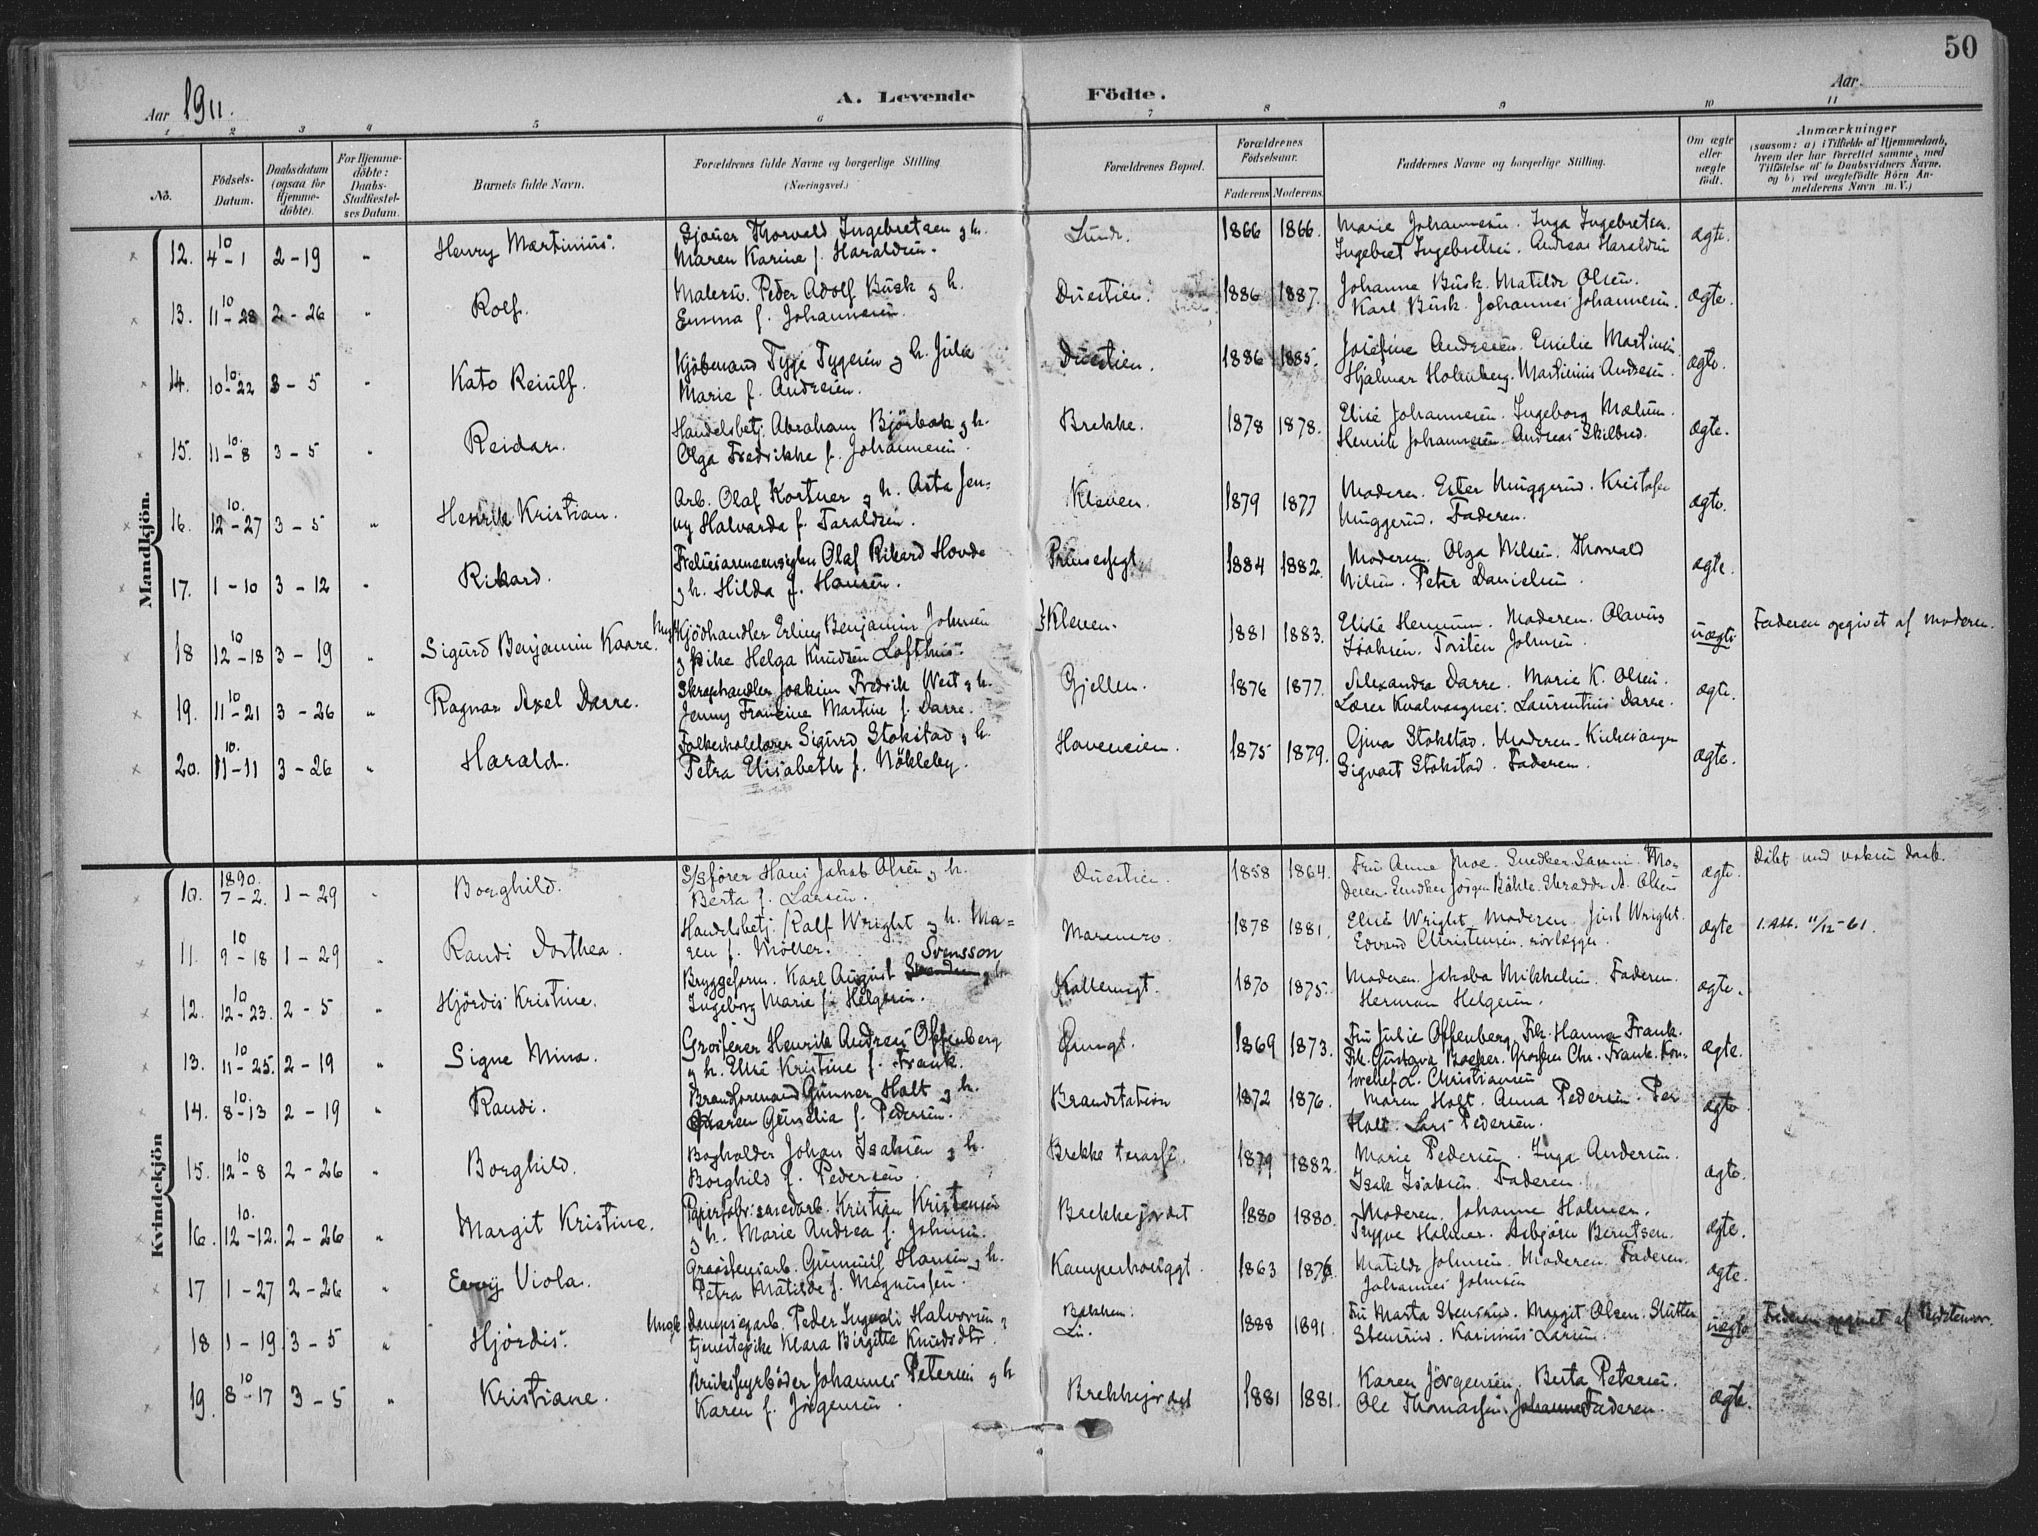 50
Aar 1911.
A. Levende Födte.
Aar
1 2 3 4 5 6 7 8 9 10 11
No.
Födsels-Datum.
Daabsdatum (ogsaa for Hjemme-döbte).
For Hjemme-döbte: Daabs-Stadfæstel-ses Datum.
Barnets fulde Navn.
Forældrenes fulde Navne og borgerlige Stilling (Næringsvei.)
Forældrenes Bopæl.
Forældrenes Födselsaar.
Faderens Moderens.
Faddernes Navne og borgerlige Stilling.
Om ægte eller uægte födt.
Anmærkninger
(saasom: a) i Tilfælde af Hjemmedaab, hvem der har forrettet samme, med Tilföielse af to Daabsvidners Navne, og b) ved uægtefödte Börn An-melderens Navn m. V.)
Mandkjön.
12. 10 4-1 2-19 " Henry Martinius. Thorvald Ingebretsen og h. Maren Karine f. Haraldsen. Lund. 1866 1866. Marie Johannesen. Inga Ingebretsen. Ingebret Ingebretsen. Andreas Haraldsen ægte.
13. 10 11-28 2-26 " Rolf. Malersv. Peder Adolf Busk og h. Emma f. Johannesen. Duestien. 1886 1887. Johanne Busk. Matilde Olsen. Karl Busk. Johannes Johannesen. ægte.
14. 10. 10-22 3-5 " Kato Reiulf. Kjöbmand Tyge Tygesen og h. Julie Marie f. Andresen. Duestien. 1886 1885. Josefine Andresen. Emilie Martinsen Hjalmar Holmberg. Martinius Andresen. ægte.
15. 10. 11-8 3-5 " Reidar. Handelsbetj. Abraham Björbæk og h. Olga Fredrikke f. Johannesen. Brekke. 1878 1878. Elise Johannesen. Ingeborg Mælum. Henrik Johannesen. Andreas Skilbred. ægte.
16. 10. 12-27 3-5 " Henrik Kristian. Arb. Olaf Kortner og h. Asta Jen-ny Halvarda f. Taraldsen. Kleven. 1879 1877 Moderen. Ester Muggerud. Kristofer Muggerud. Faderen. ægte.
17. 1-10 3-12 " Rikard. Olaf Rikard Hovde og h. Hilda f. Hansen. Prinsessegt. 1884 1882. Moderen. Olga Nilsen. Thorvald Nilsen. Peter Danielsen. ægte.
18 10 12-18 3-19 " Sigurd Benjamin Kaare. Ungk. Kjödhandler Erling Benjamin Johnsen og Pike Helga Knudsen Lofthus. Kleven. 1881 1883. Elise Hermun. Moderen. Olavus Isaksen. Torsten Johnsen. uægte Faderen opgivet af moderen.
19. 10 11-21 3-26 " Ragnar Axel Darre. Skraphandler Joakim Fredrik Weit og h. Jenny Francine Martine f. Darre. Gjellen. 1876 1877. Alexandra Darre. Marie K. Olsen. Lærer Kvalvaagnes. Laurentius Darre. ægte.
20. 10. 11-11 3-26 " Harald. Sigurd Stokstad og h. Petra Elisabeth f. Nökleby. Haveveien. 1875 1879. Gina Stokstad. Moderen. Kirkesanger Sigvart Stokstad. Faderen. ægte.
Kvindekjön
10. 1890. 7-2. 1-29 " Borghild. S/sförer Hans Jakob Olsen og h. Berta f. Larsen. Duestien. 1858 1864. Fru Anne Moe. Mo-deren. A. Olsen ægte. Döbt med voksen daab.
11. 10 9-18 1-29 " Randi Dorthea. Handelsbetj. Ralf Wright og h. Ma-ren f. Möller. 1878 1881. Elise Wright. Moderen. Just Wright. Edvard Christensen. rörlægger. ægte 1. Att. 11/12-61.
12. 10 12-23. 2-5 " Hjördis Kristine. Bryggeform. Karl August Svensson og h. Ingeborg Marie f. Helgesen. 1870 1875. Moderen. Jakoba Mikkelsen. Faderen. Herman Helgesen. ægte.
13. 10 11-25. 2-19 " Signe Mina. Grosserer Henrik Andreas Offenberg og h. Elise Kristine f. Frank. 1869 1873. Fru Julie Offenberg. Frk. Hanna Frank. Frk. Gustava Boeker. Grosserer Chr. Frank. Kon-torchef L. Christiansen ægte.
14. 10. 8-13 2-19 " Randi. Brandformand Gunner Holt og h. Karen Gunelia f. Pedersen. Brandstation 1872 1876. Maren Holt. Anna Pedersen. Per Holt. Lars Pedersen. ægte
15. 10 12-8 2-26 " Borghild. Bogholder Johan Isaksen og h. Borghild f. Pedersen. Brekke terasse. 1879 1882. Marie Pedersen. Inga Andersen. Isak Isaksen. Faderen. ægte.
16. 10. 12-12. 2-26 " Margit Kristine. Kristian Kristensen og h. Marie Andrea f. Johnsen. Bakkejordet 1880 1880. Moderen. Johanne Holmer. Trygve Holmer. Asbjörn Berntsen. ægte.
17 1-27 2-26 " Evy Viola. Graastensarb. Gunnuf Hansen og h. Petra Matilde f. Magnussen. Kamperhouggt. 1863 1876. Matilde Johnsen. Moderen. Faderen. Johannes Johnsen ægte.
18 1-19. 3-5 " Hjördis. Ungk. Dampsagarb. Peder Ingvald Halvorsen og tjenestepike Klara Birgitte Knudsdtr. Bakken. Li. 1888 1891. Fru Marta Stensrud. Margit Olsen. Slutter Stensrud. Karinius Larsen. uægte Faderen opgivet af
19. 10 8-17 3-5 " Kristiane. Bruksfyrböder Johannes Petersen og h Karen f. Jörgensen. Brekkejordet 1881 1881. Karen Jörgensen. Berta Petersen. Ole Thomassen. Johannes Faderen. ægte.